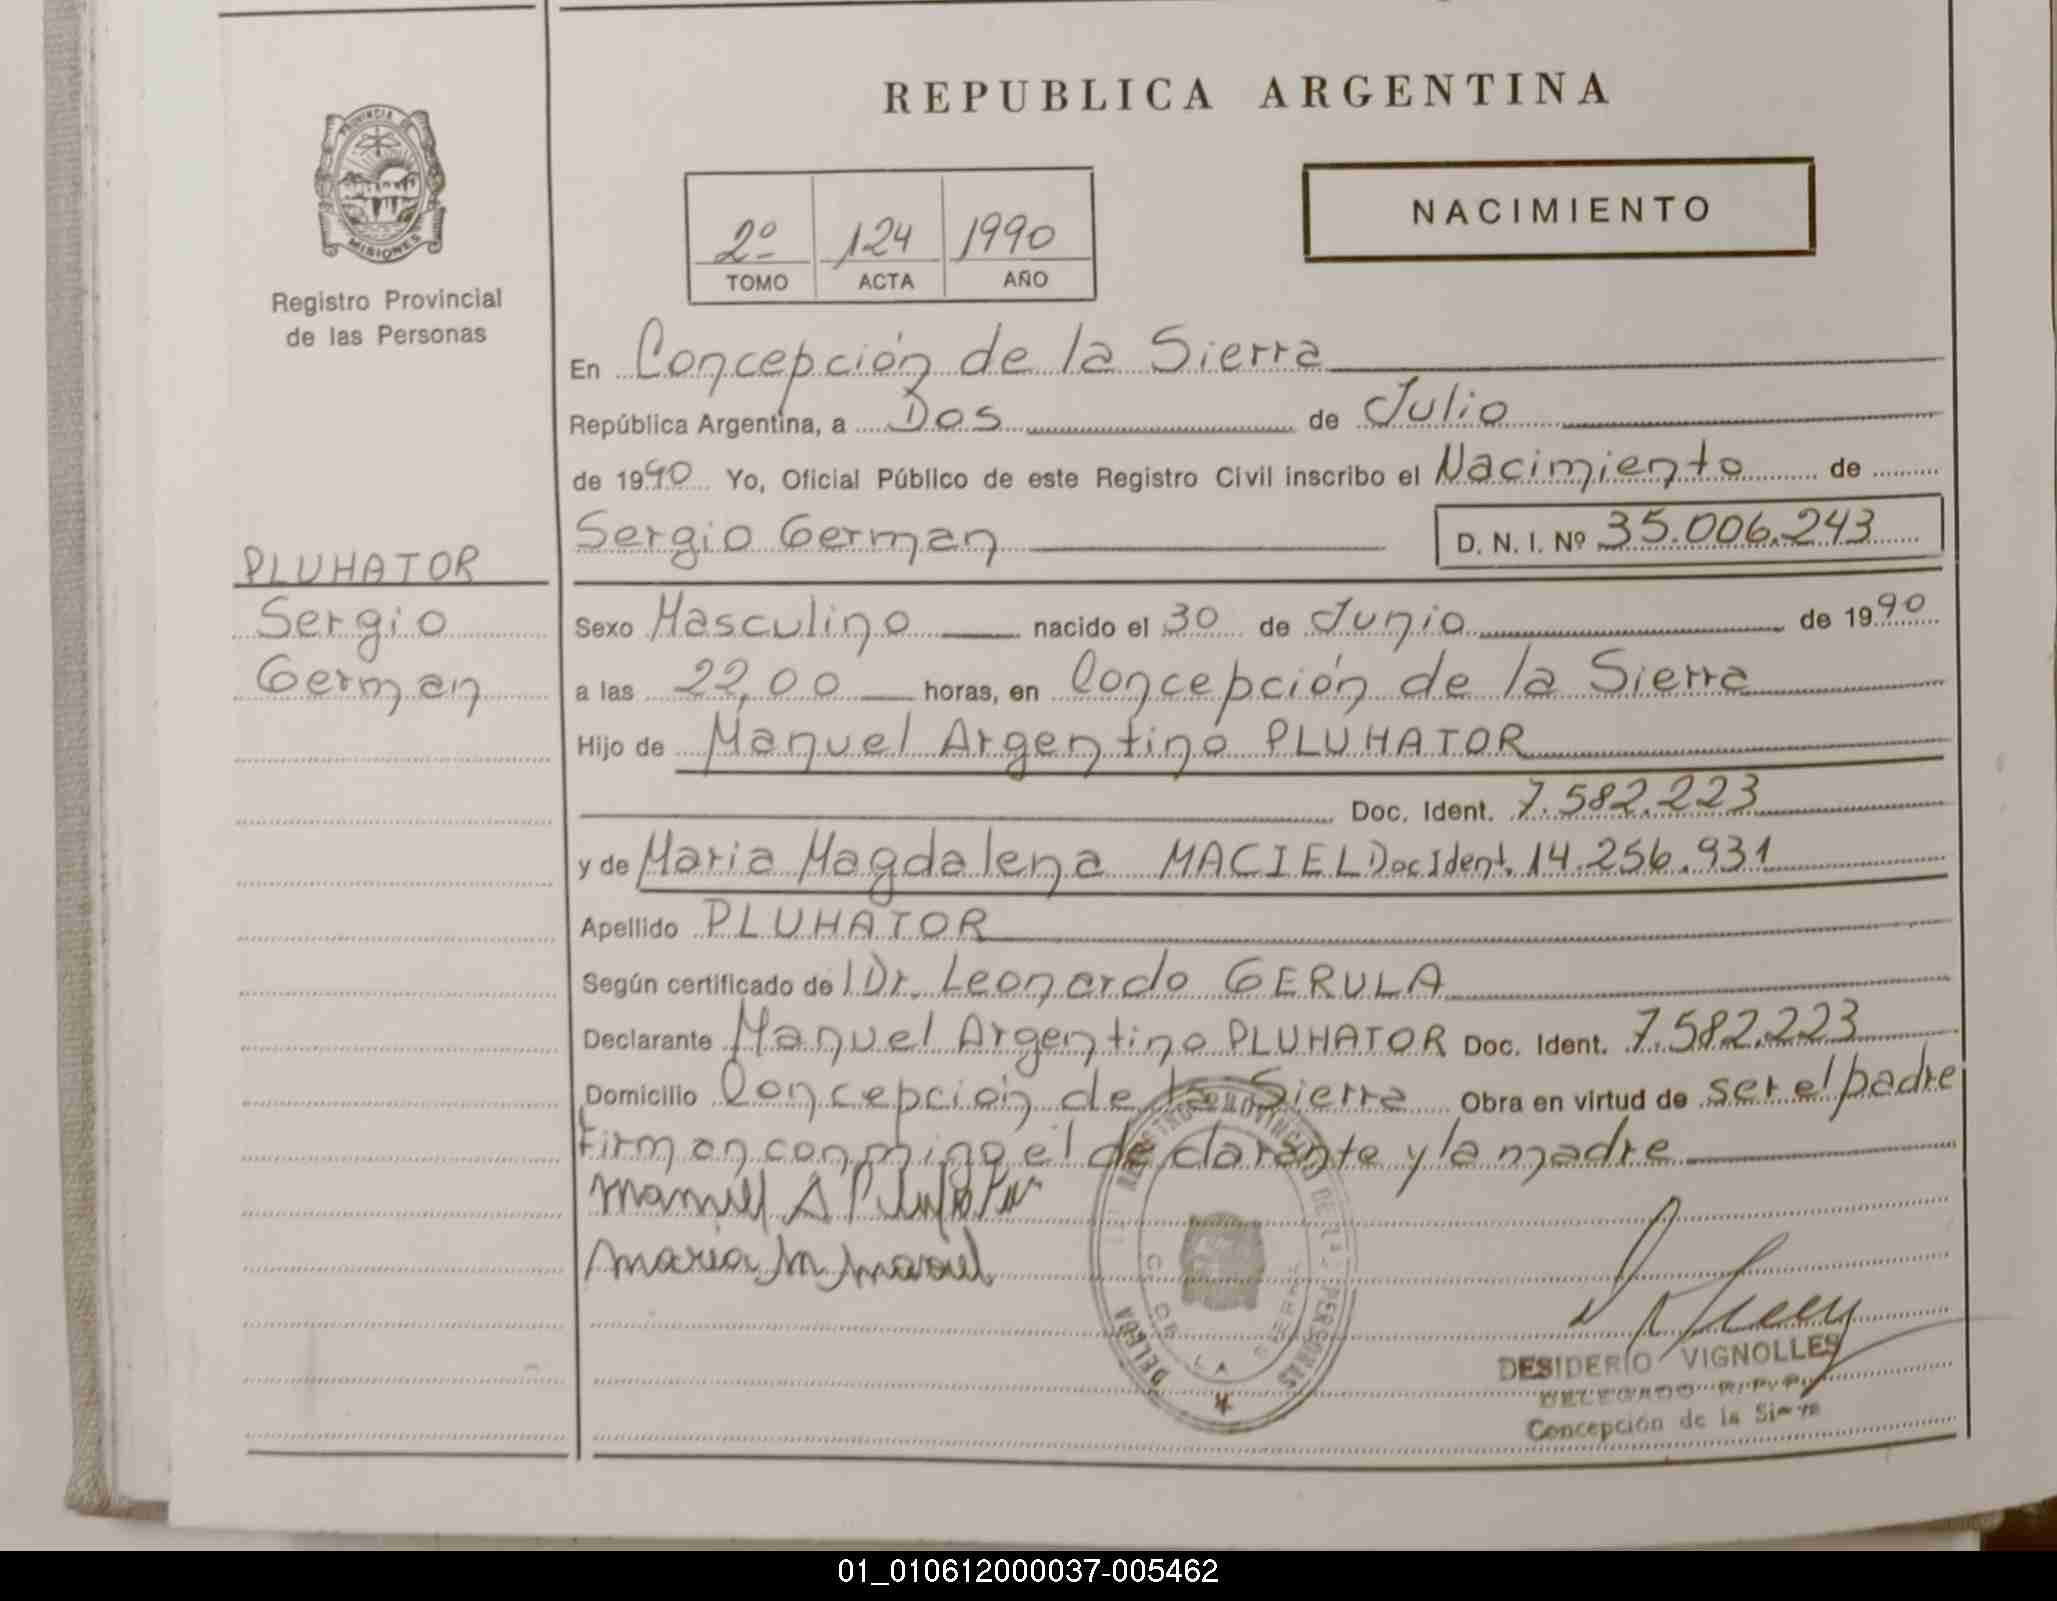 REPUBLICA ARGENTINA
PROVINCIA DE
MISIONES
Registro Provincial
de las Personas
NACIMIENTO
2º 124 1990
TOMO ACTA AÑO
En Concepción de la Sierra
República Argentina, a Dos de Julio
de 1990 Yo, Oficial Público de este Registro Civil inscribo el Nacimiento de
Sergio German D. N. I. Nº 35.006.243
PLUHATOR
Sergio
German
Sexo Masculino nacido el 30 de Junio de 1990
a las 22,00 horas, en Concepción de la Sierra
Hijo de Manuel Argentino PLUHATOR
Doc. Ident. 7.582.223
y de Maria Magdalena MACIEL Doc Ident. 14.256.931
Apellido PLUHATOR
Según certificado de l Dr. Leonardo GERULA
Declarante Manuel Argentino PLUHATOR Doc. Ident. 7.582.223
Domicilio Concepción de la Sierra Obra en virtud de ser el padre
Firman conmigo el declarante y la madre
Manuel A Pluhator
Maria M Maciel
DESIDERIO VIGNOLLES
DELEGADO R.P.P.
Concepción de la Sierra
01_010612000037-005462